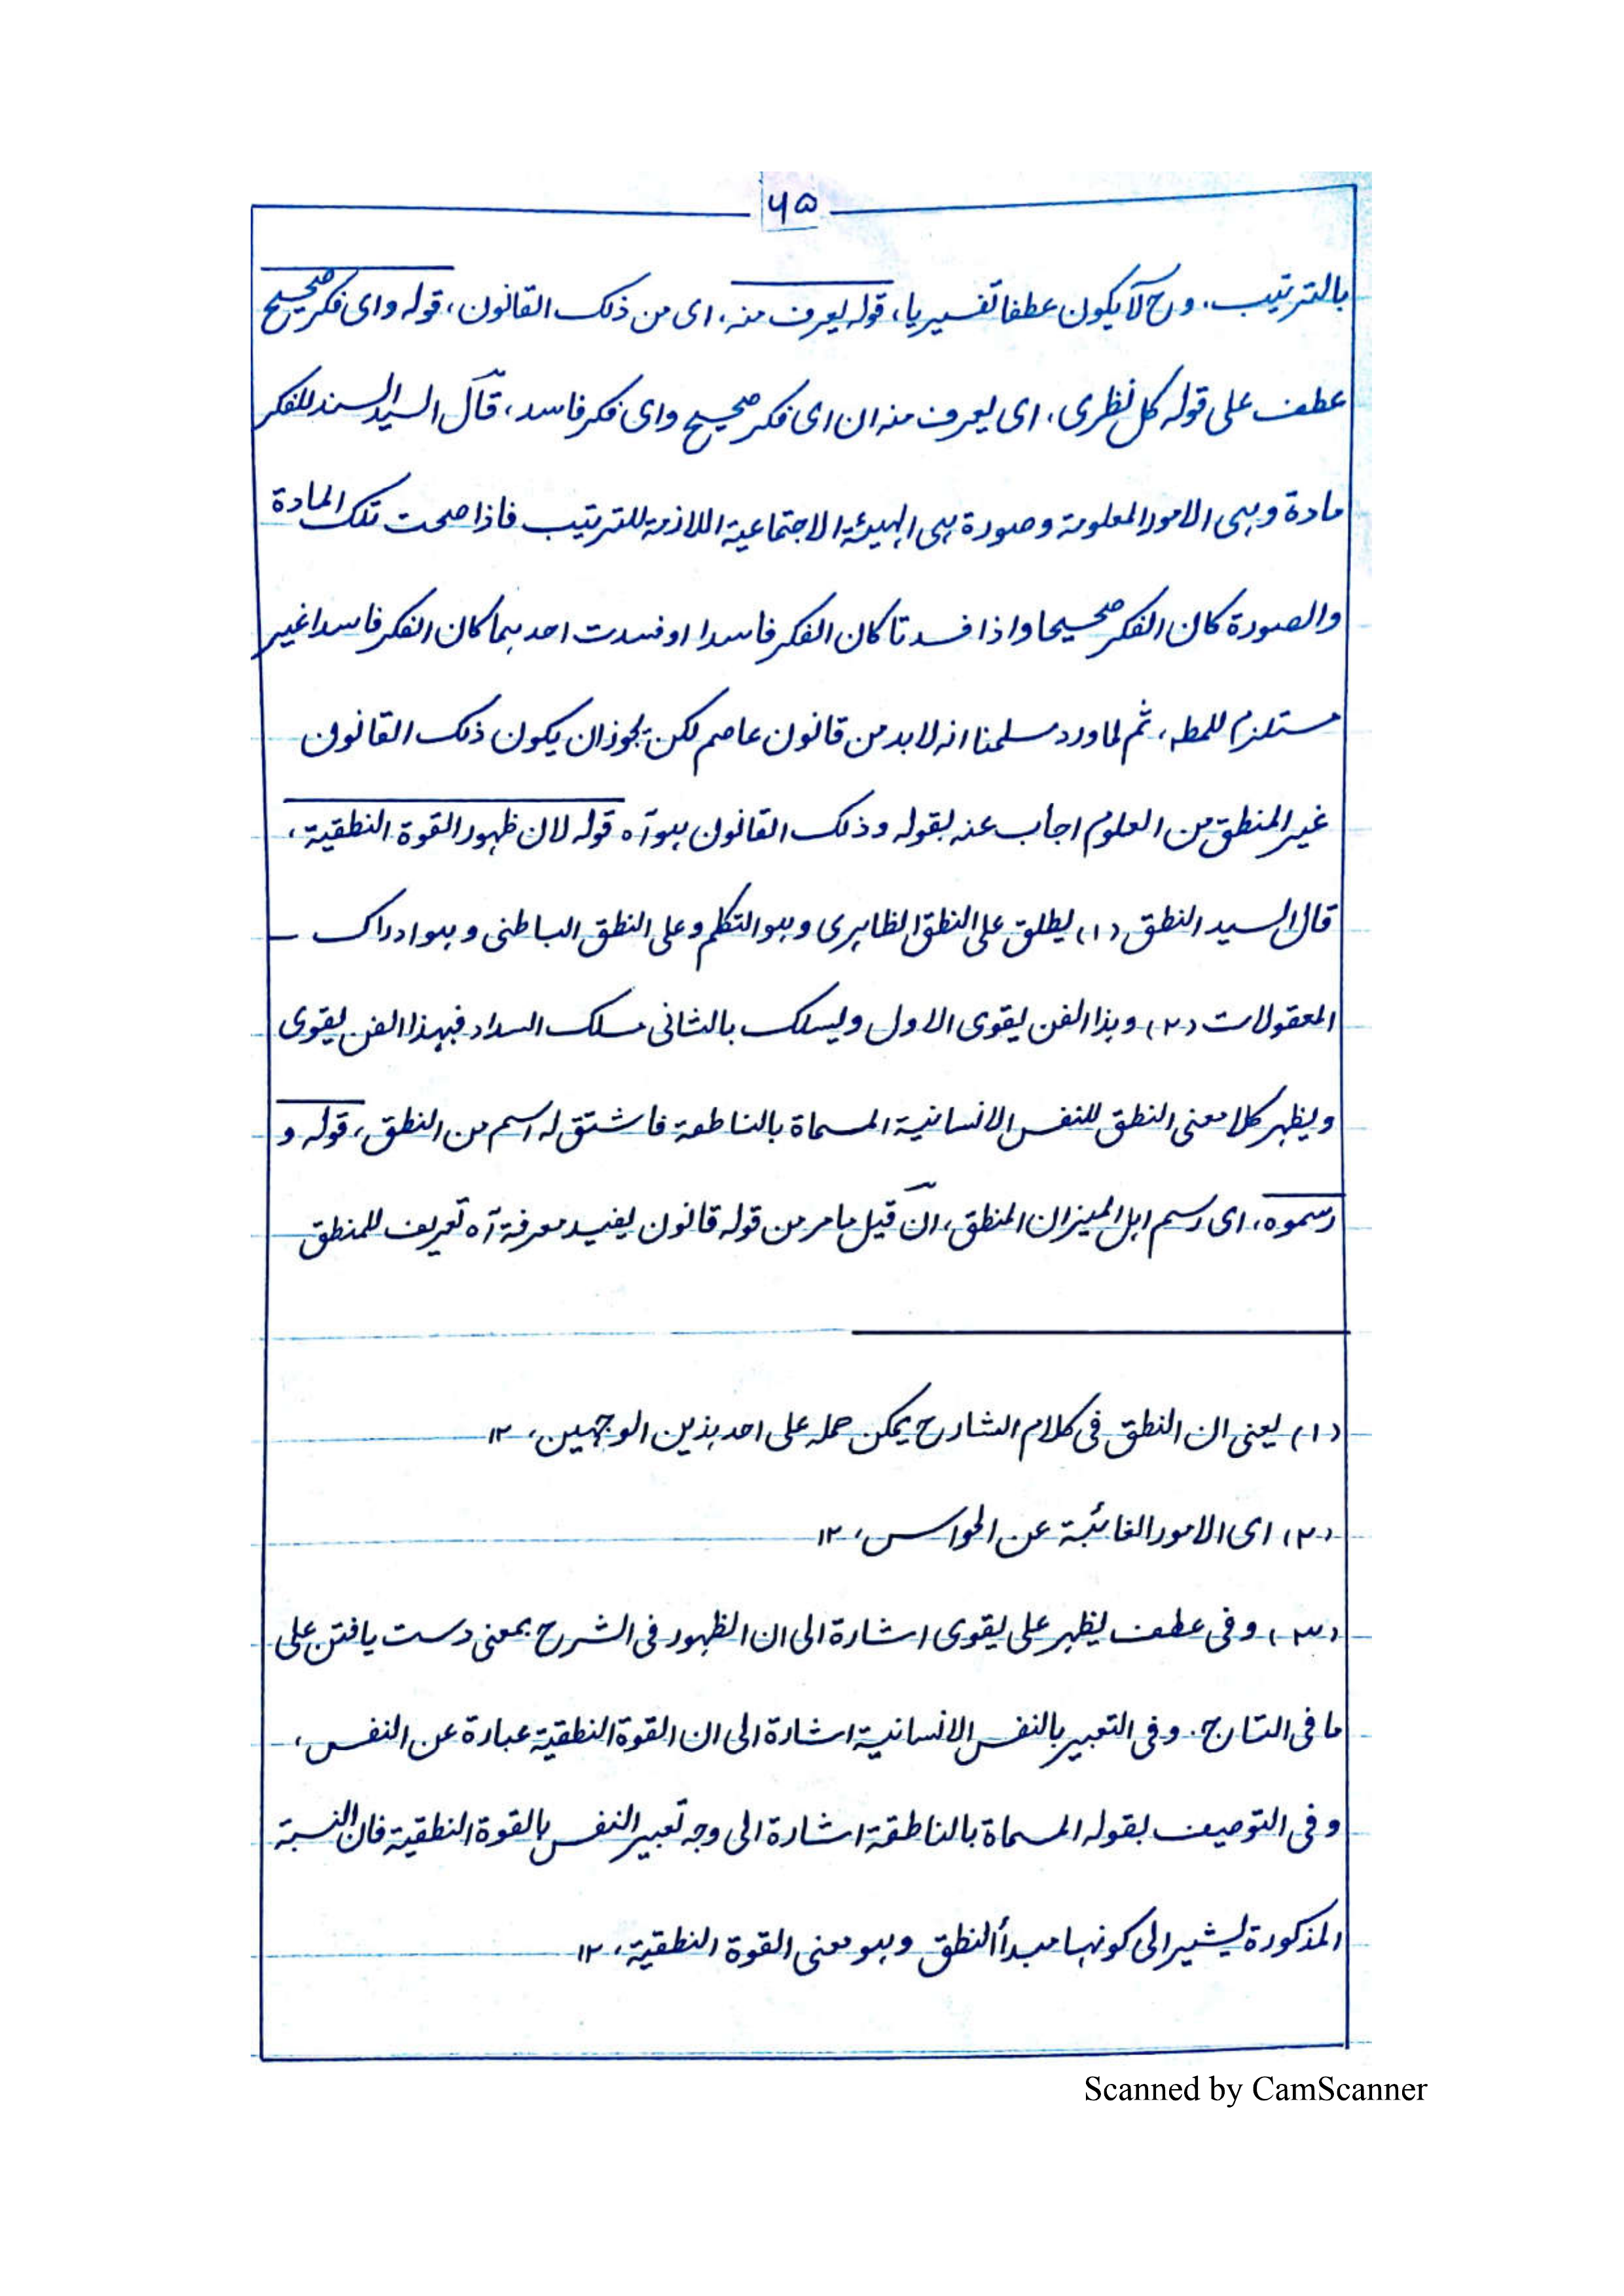 ۶۵
بالترتیب. وح لا یکون عطفا تفسیریا، قوله یعرف منه، ای من ذلک القانون، قوله وای فکر صحیح
عطف علی قوله کل نظری، ای یعرف منه ان ای فکر صحیح وای فکر فاسد، قال السید السند للفکر
مادة وهی الامور المعلومة وصورة هی الهیئة الاجتماعیة اللازمة للترتیب فاذا صحت تلک المادة
والصورة کان الفکر صحیحا واذا فسدتا کان الفکر فاسدا او فسدت احدهما کان الفکر فاسدا غیر
مستلزم للمطه، ثم لما ورد سلمنا انه لا بد من قانون عاصم لکن یجوز ان یکون ذلک القانون
غیر المنطق من العلوم اجاب عنه بقوله وذلک القانون هو آه قوله لان ظهور القوة النطقیة،
قال السید النطق (۱) یطلق علی النطق الظاهری وهو التکلم وعلی النطق الباطنی وهو ادراک
المعقولات (۲) وهذا الفن یقوی الاول ویسلک بالثانی مسلک السداد فبهذا الفن یقوی
ویظهر کلا معنی النطق للنفس الانسانیة المسماة بالناطقة فاشتق له اسم من النطق، قوله و
رسموه، ای رسم اهل المیزان المنطق، ان قیل ما مر من قوله قانون یفید معرفة آه تعریف للمنطق
(۱) یعنی ان النطق فی کلام الشارح یمکن حمله علی احد هذین الوجهین، ۱۲
(۲) ای الامور الغائبة عن الحواس، ۱۲
(۳) وفی عطف یظهر علی یقوی اشارة الی ان الظهور فی الشرح بمعنی دست یافتن علی
ما فی التارج. وفی التعبیر بالنفس الانسانیة اشارة الی ان القوة النطقیة عبارة عن النفس،
وفی التوصیف بقوله المسماة بالناطقة اشارة الی وجه تعبیر النفس بالقوة النطقیة فان النسبة
المذکورة یشیر الی کونها مبدأ النطق وهو معنی القوة النطقیة، ۱۲
Scanned by CamScanner